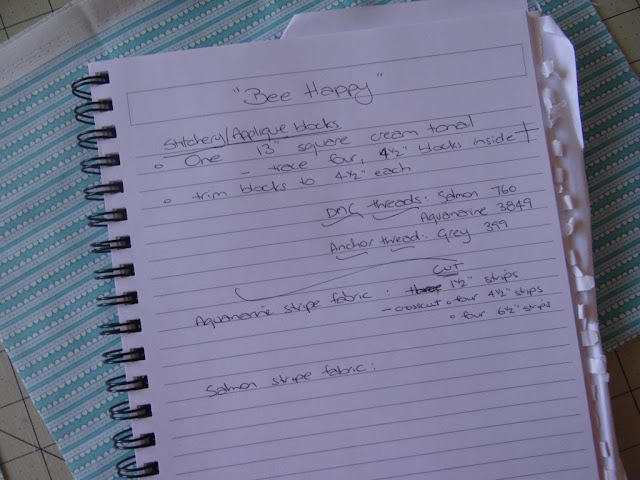 "Bee Happy"
Stitchery/Applique blocks
o One 13" square cream tonal
- trace four, 4½" blocks inside
o trim blocks to 4½" each
DMC threads: Salmon 760
Aquamarine 3849
Anchor thread: Grey 399
CUT
Aquamarine stripe fabric: three 1½" strips
- crosscut o four 4½" strips
o four 6½" strips
Salmon stripe fabric: